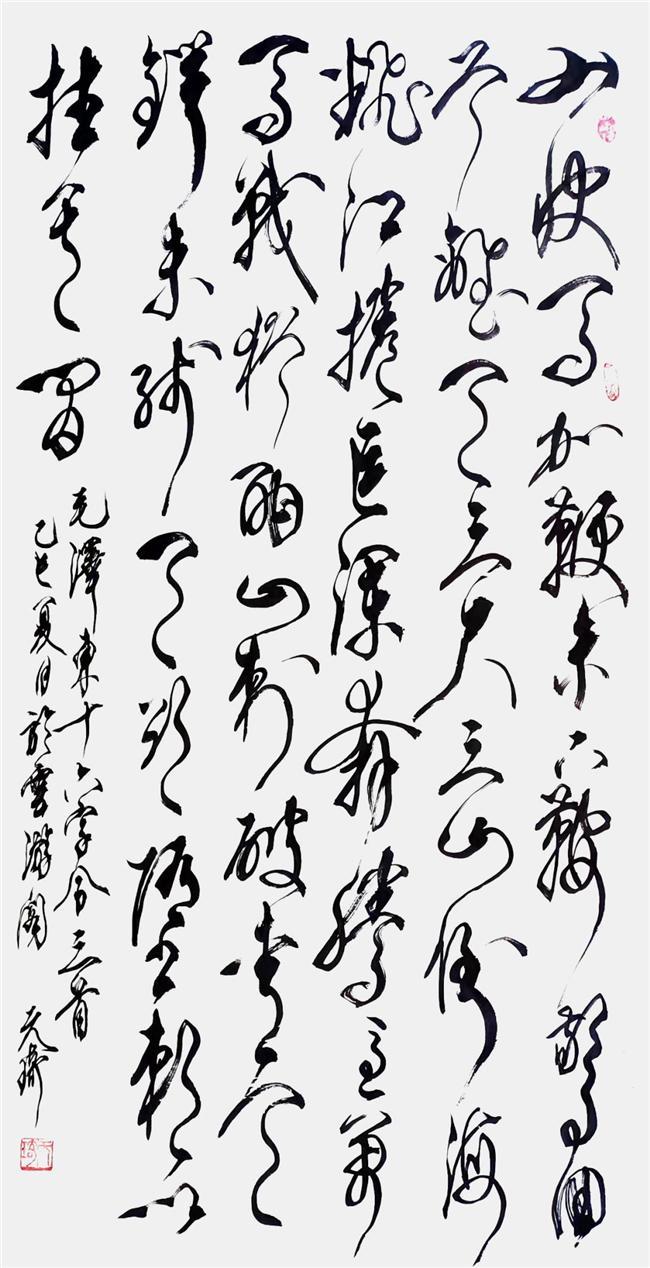 山快馬加鞭未下鞍驚回
首離天三尺三山倒海
翻江捲巨瀾奔騰急萬
馬戰猶酣山刺破青天
鍔未殘天欲墮賴以
拄其間
毛澤東十六字令三首
乙巳夏日於雲游閣